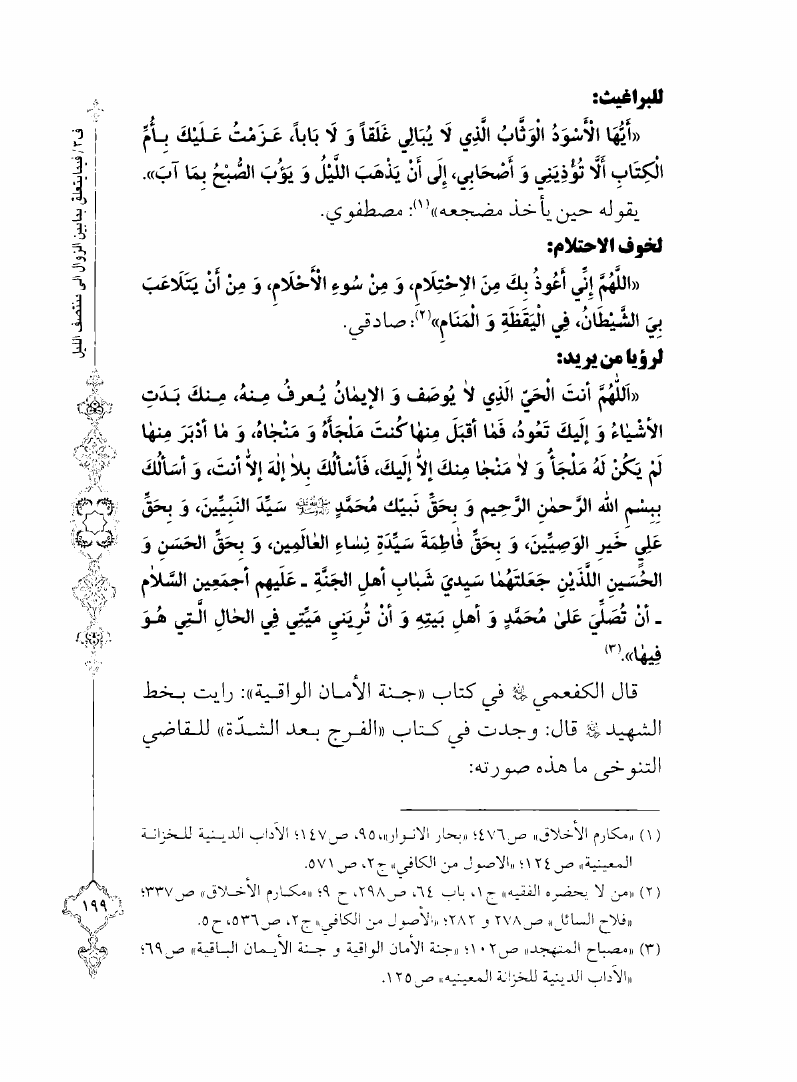 للبراغيث:
«أَيُّهَا الْأَسْوَدُ الْوَثَّابُ الَّذِي لَا يُبَالِي غَلَقاً وَ لَا بَاباً، عَـزَمْتُ عَـلَيْكَ بِـأُمِّ
الْكِتَابِ أَلَّا تُؤْذِيَنِي وَ أَصْحَابِي، إِلَى أَنْ يَذْهَبَ اللَّيْلُ وَ يَؤُبَ الصُّبْحُ بِمَا آبَ».
يقوله حين يأخذ مضجعه»(١): مصطفوي.
لخوف الاحتلام:
«اللَّهُمَّ إِنِّي أَعُوذُ بِكَ مِنَ الِاحْتِلَامِ، وَ مِنْ سُوءِ الْأَحْلَامِ، وَ مِنْ أَنْ يَتَلَاعَبَ
بِيَ الشَّيْطَانُ، فِي الْيَقَظَةِ وَ الْمَنَامِ»(٢): صادقي.
لرؤيا من يريد:
«اَللّٰهُمَّ أنتَ الْحَيّ الَّذِي لاٰ يُوصَف وَ الإيمٰانُ يُـعرفُ مِـنهُ، مِـنكَ بَـدَتِ
الأشْيٰاءُ وَ إِلَيكَ تَعُودُ، فَمٰا أقبَلَ مِنهٰا كُنتَ مَلْجَأهُ وَ مَنْجٰاهُ، وَ مٰا أدْبَرَ مِنهٰا
لَمْ يَكُنْ لَهُ مَلْجَأ وَ لاٰ مَنْجٰا مِنكَ إلاّٰ إلَيكَ، فَأسْألُكَ بِلاٰ إلٰهَ إلاّٰ أنتَ، وَ أسَألُكَ
بِبِسْمِ الله الرَّحمٰنِ الرَّحِيمِ وَ بِحَقِّ نَبيّكَ مُحَمَّدٍ ﷺ سَيِّدَ النَبِيِّينَ، وَ بِحَقِّ
عَلِي خَيرِ الوَصِيِّينَ، وَ بِحَقِّ فٰاطِمَةَ سَيِّدَةِ نِسٰاءِ العٰالَمِين، وَ بِحَقِّ الحَسَنِ وَ
الحُسَينِ اللَّذَيْنِ جَعَلتَهُمٰا سَيِديَ شَبٰابِ أهلِ الجَنَّةِ ـ عَلَيهِم أجمَعِين السَّلاٰم
ـ أنْ تُصَلِّيَ عَلىٰ مُحَمَّدٍ وَ أهلِ بَيتِهِ وَ أنْ تُرِيَني مَيِّتِي فِي الحٰالِ الَّـتِي هُـوَ
فِيهٰا».(٣)
قال الكفعمي في كتاب «جـنة الأمـان الواقـية»: رايت بـخط
الشهيد قال: وجدت في كـتاب «الفـرج بـعد الشـدّة» للـقاضي
التنوخي ما هذه صورته:
(١) «مكارم الأخلاق» ص٤٧٦؛ «بحار الانوار»، ٩٥، ص١٤٧؛ الآداب الديـنية للـخزانـة
المعينية» ص١٢٤؛ «الاصول من الكافي» ج٢، ص٥٧١.
(٢) «من لا يحضره الفقيه» ج١، باب ٦٤، ص٢٩٨، ح ٩؛ «مكـارم الأخـلاق» ص٣٣٧؛
«فلاح السائل» ص٢٧٨ و ٢٨٢؛ «الأصول من الكافي» ج٢، ص٥٣٦، ح٥.
(٣) «مصباح المتهجد» ص١٠٢؛ «جنة الأمان الواقية و جـنة الأيـمان البـاقية» ص٦٩؛
«الآداب الدينية للخزانة المعينيه» ص١٢٥.
ف٣ / فيما يتعلق بما بين الزوال الى منتصف الليل
١٩٩